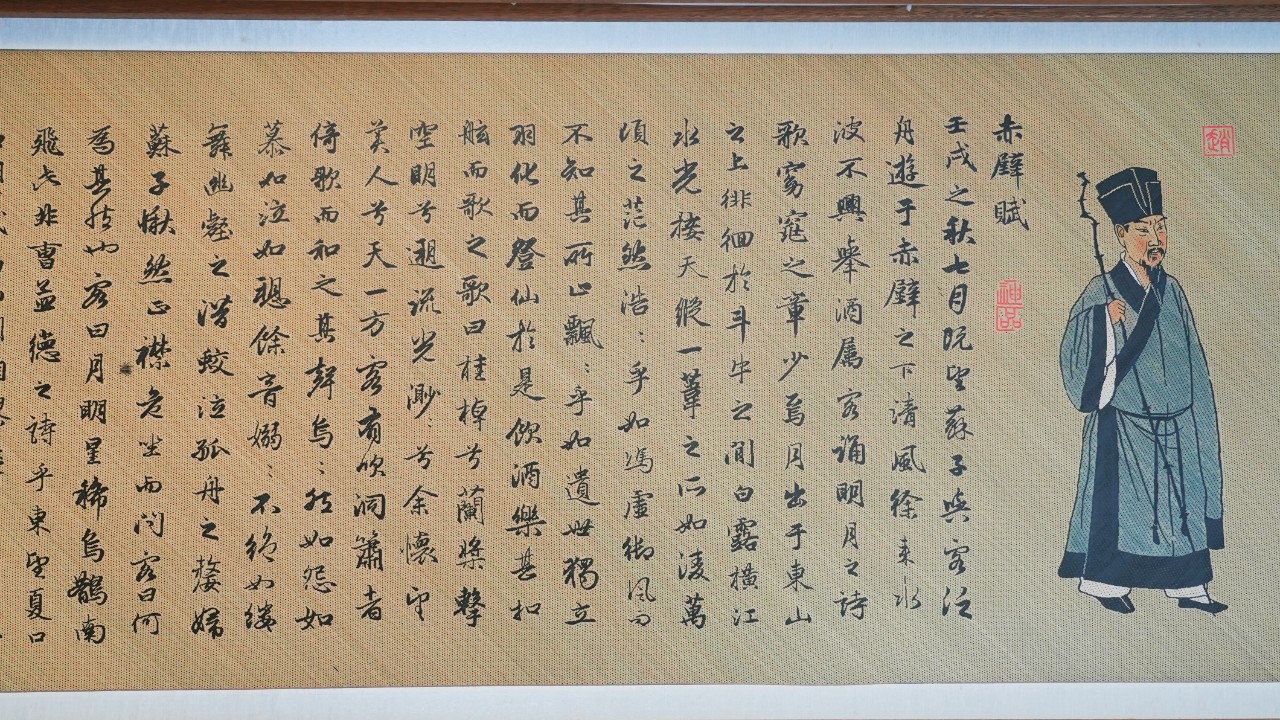 趙
赤壁賦
神品
壬戌之秋七月既望蘇子與客泛
舟遊于赤壁之下清風徐来水
波不興舉酒屬客誦明月之詩
歌窈窕之章少焉月出于東山
之上徘徊於斗牛之間白露橫江
水光接天縱一葦之所如淩萬
頃之茫然浩：乎如馮虛御風而
不知其所止飄：乎如遺世獨立
羽化而登仙於是飲酒樂甚扣
舷而歌之歌曰桂棹兮蘭槳擊
空明兮遡流光渺：兮余懷望
美人兮天一方客有吹洞簫者
倚歌而和之其聲烏：然如怨如
慕如泣如愬餘音嫋：不絕如縷
舞幽壑之潛蛟泣孤舟之嫠婦
蘇子愀然正襟危坐而問客曰何
為其然也客曰月明星稀烏鵲南
飛此非曹孟德之詩乎東望夏口